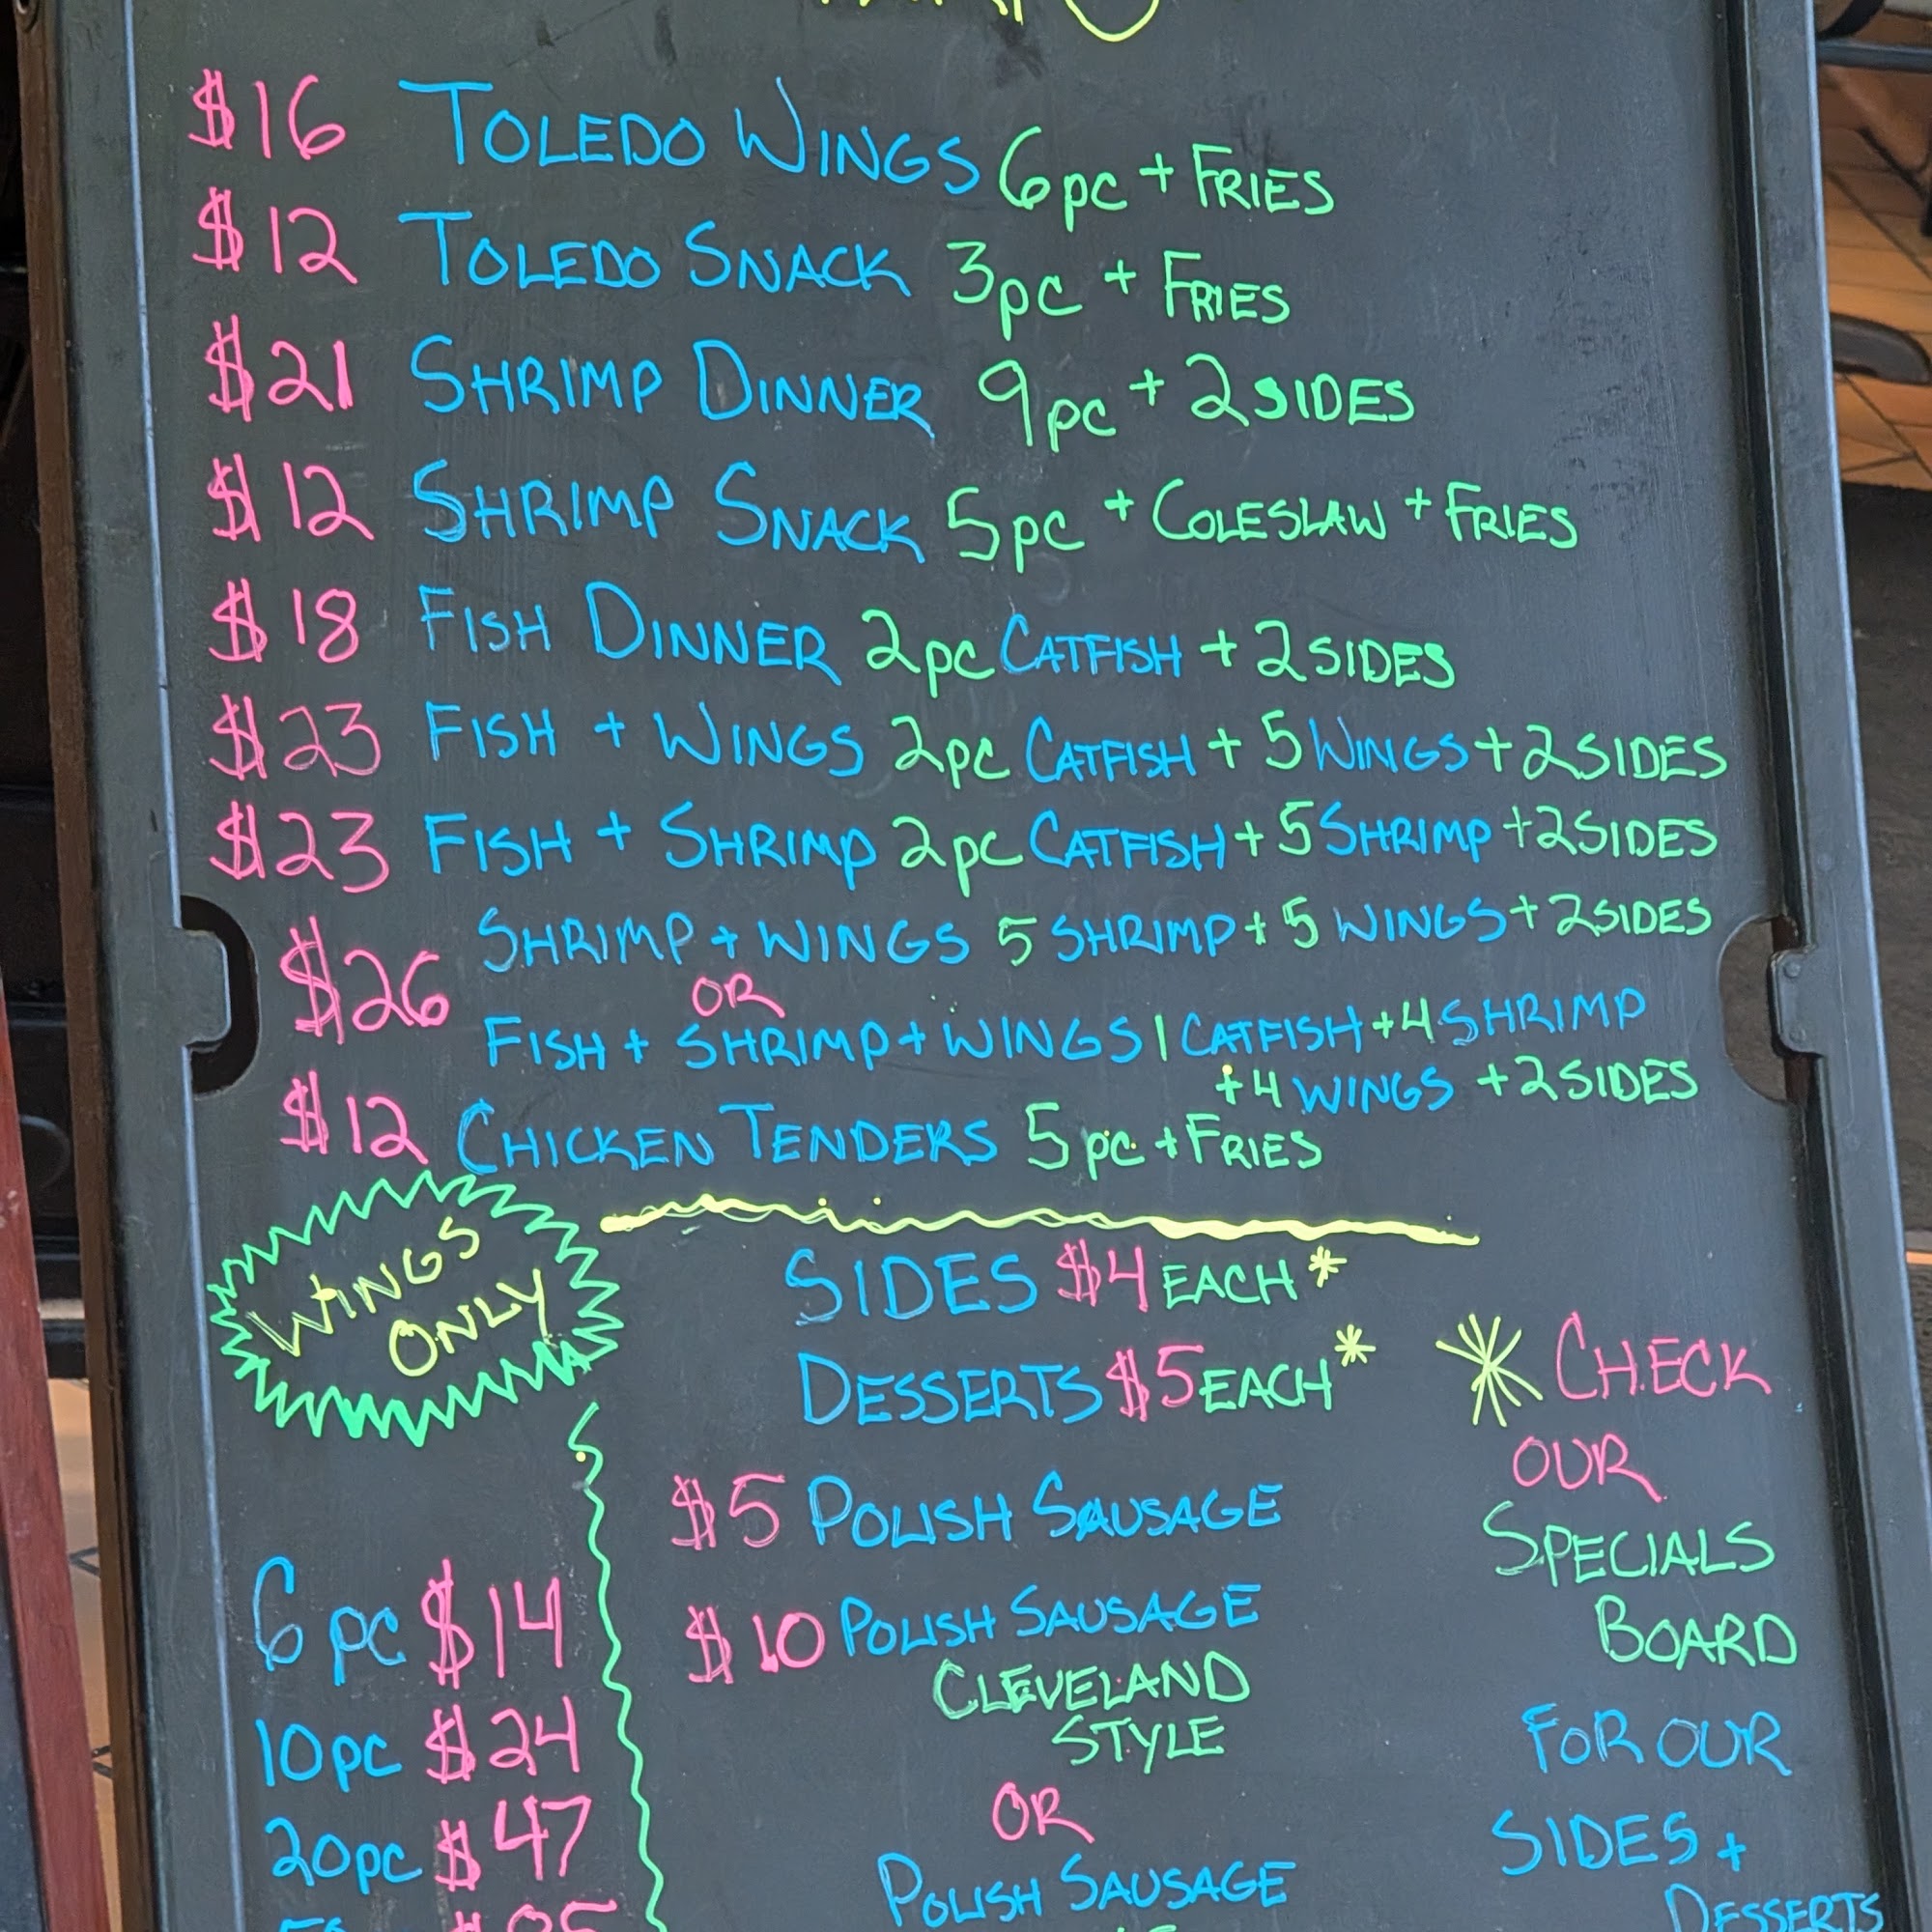 $16 TOLEDO WINGS 6pc + FRIES
$12 TOLEDO SNACK 3pc + FRIES
$21 SHRIMP DINNER 9pc + 2 SIDES
$12 SHRIMP SNACK 5pc + COLESLAW + FRIES
$18 FISH DINNER 2pc CATFISH + 2 SIDES
$23 FISH + WINGS 2pc CATFISH + 5 WINGS + 2 SIDES
$23 FISH + SHRIMP 2pc CATFISH + 5 SHRIMP + 2 SIDES
$26 SHRIMP + WINGS 5 SHRIMP + 5 WINGS + 2 SIDES
OR
FISH + SHRIMP + WINGS 1 CATFISH + 4 SHRIMP
+ 4 WINGS + 2 SIDES
$12 CHICKEN TENDERS 5 pc + FRIES
WINGS
ONLY
6 pc $14
10pc $24
20pc $47
SIDES $4 EACH *
DESSERTS $5 EACH *
$5 POLISH SAUSAGE
$10 POLISH SAUSAGE
CLEVELAND
STYLE
OR
POLISH SAUSAGE
* CHECK
OUR
SPECIALS
BOARD
FOR OUR
SIDES +
DESSERTS